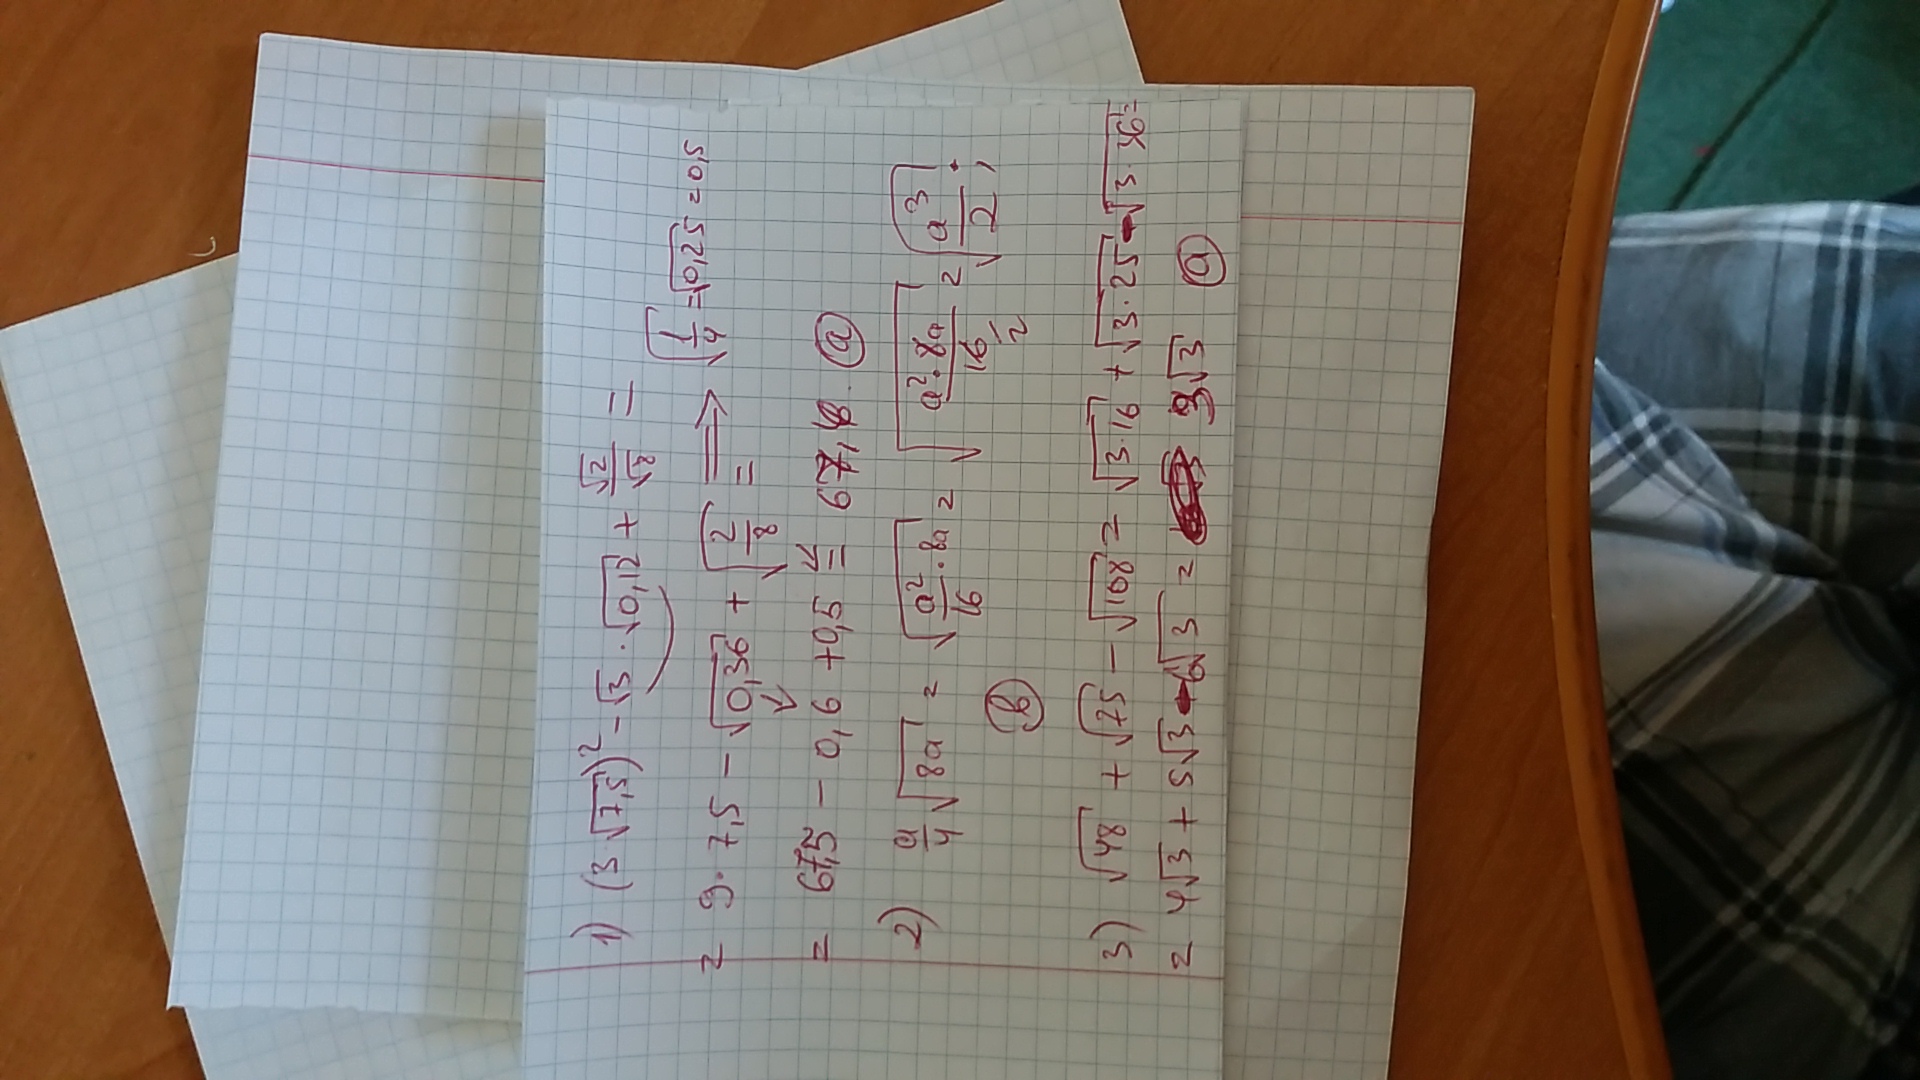 1) (3√7,5)² - √3 · √0,12 + √2/√8 =
= 9 · 7,5 - √0,36 + √(2/8) = ⟹ √(1/4) = √0,25 = 0,5
= 67,5 - 0,6 + 0,5 = 67,4 ⓐ
2) a/4 √8a = √(a²/16 · 8a) = √(a² · 8a/16) = √(a³/2);
ⓑ
3) √48 + √75 - √108 = √3·16 + √3·25 - √3·36 =
= 4√3 + 5√3 - 6√3 = 3√3 ⓐ